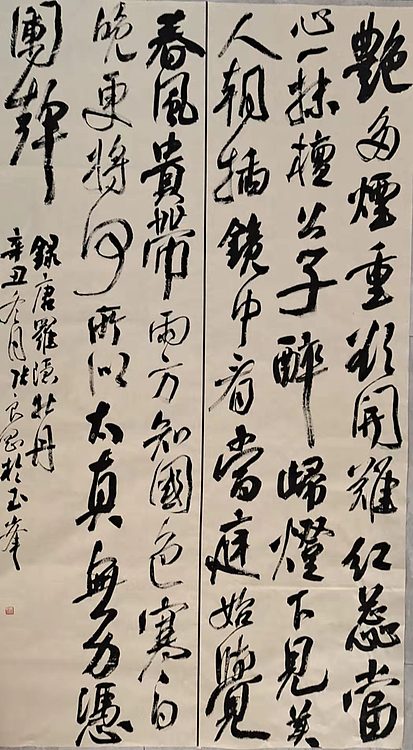 艷多煙重欲開難紅蕊當
心一抹檀公子醉歸燈下見美
人朝插鏡中看當庭始覺
春風貴帶雨方知國色寒日
晚更將何所似太真無力憑
闌幹
錄唐羅隱牡丹
辛丑冬月張良於玉峯